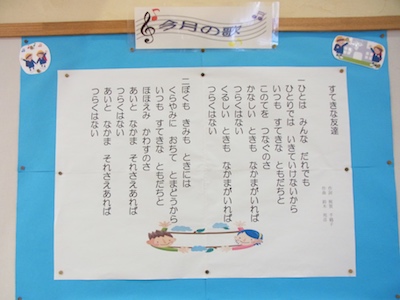 今月の歌
すてきな友達
一 ひとは みんな だれでも
ひとりでは いきていけないから
いつも すてきな ともだちと
このてを つなぐのさ
かなしい ときも なかまがいれば
つらくはない
くるしい ときも なかまがいれば
つらくはない
二 ぼくも きみも ときには
くらやみに おちて とまどうから
いつも すてきな ともだちと
ほほえみ かわすのさ
あいと なかま それさえあれば
つらくはない
あいと なかま それさえあれば
つらくはない